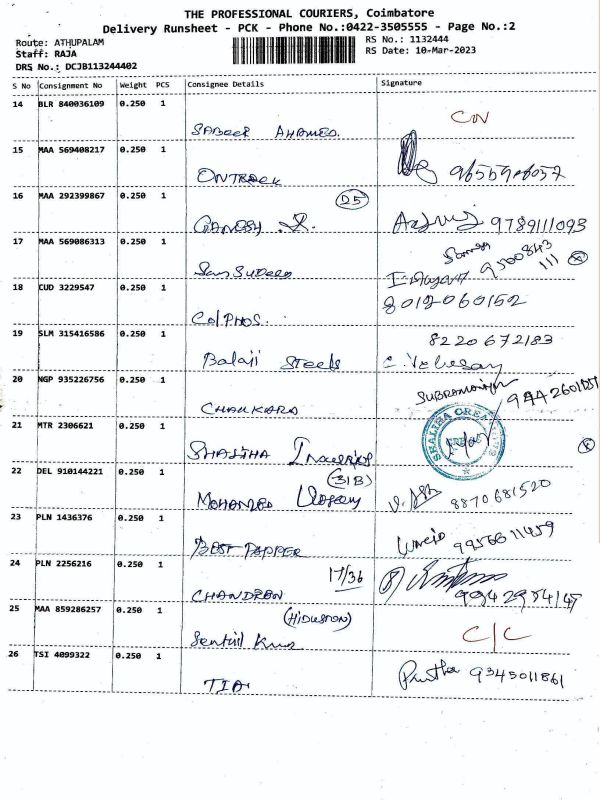 THE PROFESSIONAL COURIERS, Coimbatore
Delivery Runsheet - PCK - Phone No.:0422-3505555 - Page No.:2
Route: ATHUPALAM
Staff: RAJA
DRS No.: DCJB113244402
RS No.: 1132444
RS Date: 10-Mar-2023
S No Consignment No Weight PCS Consignee Details Signature
14 BLR 840036109 0.250 1
SABEER AHAMED. CN
15 MAA 569408217 0.250 1
ONTRACK
16 MAA 292399867 0.250 1 D5
GANESH .R. 9789111093
17 MAA 569086313 0.250 1
9500843
111
18 CUD 3229547 0.250 1 8012060152
ColPHOS.
19 SLM 315416586 0.250 1 8220672183
Balaji Steels
20 NGP 935226756 0.250 1
CHANKARA
21 MTR 2306621 0.250 1
SHALIHA
22 DEL 910144221 0.250 1 (31B)
MOHAMED 8870681520
23 PLN 1436376 0.250 1
BEST PAPPER
24 PLN 2256216 0.250 1 17/36
CHANDRAN
25 MAA 859286257 0.250 1
Senthil C/C
26 TSI 4099322 0.250 1
TIA 9345011861